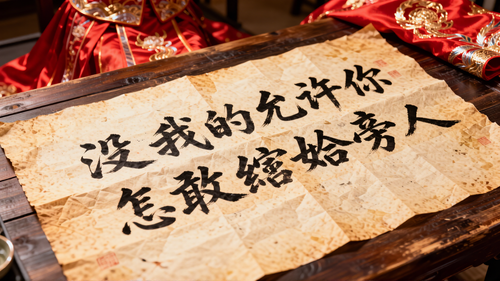 没我的允许你
怎敢旁人